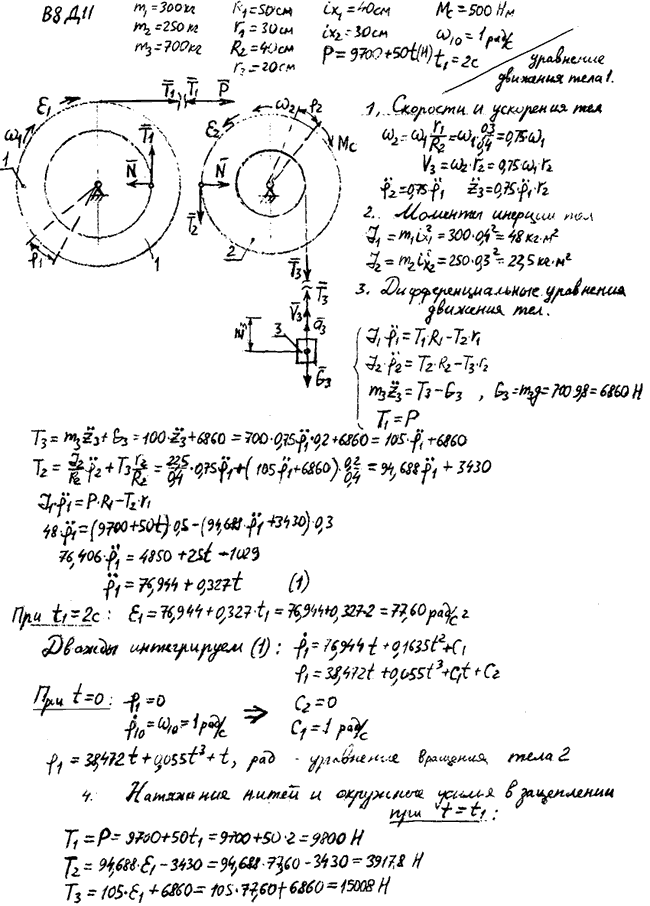 В8 Д11 m₁=300кг R₁=50см ix₁=40см Mc=500 Нм
m₂=250кг r₁=30см ix₂=30см ω₁₀=1 рад/с
m₃=700кг R₂=40см P=9700+50t(Н) t₁=2с
r₂=20см
уравнение
движения тела 1.
ε₁ T̄₁ T̄₁ P̄ ω₂ φ₂
ω₁ T̄₁ ε₂ Mc
1 N̄ N̄
T̄₂
φ₁ 1 2 T̄₃
T̄₃
V̄₃ ā₃
3
Ḡ₃
1. Скорости и ускорения тел
ω₂=ω₁ r₁/R₂=ω₁ 0,3/0,4=0,75ω₁
V₃=ω₂·r₂=0,75ω₁·r₂
φ̈₂=0,75φ̈₁ z̈₃=0,75·φ̈₁·r₂
2. Моменты инерции тел
J₁=m₁ix₁²=300·0,4²=48 кг·м²
J₂=m₂ix₂²=250·0,3²=22,5 кг·м²
3. Дифференциальные уравнения
движения тел.
J₁·φ̈₁=T₁·R₁-T₂·r₁
J₂·φ̈₂=T₂·R₂-T₃·r₂
m₃z̈₃=T₃-G₃ , G₃=m₃g=700·9,8=6860 Н
T₁=P
T₃=m₃z̈₃+G₃=100·z̈₃+6860=700·0,75φ̈₁·0,2+6860=105·φ̈₁+6860
T₂=J₂/R₂·φ̈₂+T₃ r₂/R₂=22,5/0,4·0,75φ̈₁+(105φ̈₁+6860)·0,2/0,4=94,688φ̈₁+3430
J₁·φ̈₁=P·R₁-T₂·r₁
48·φ̈₁=(9700+50t)·0,5-(94,688·φ̈₁+3430)·0,3
76,406·φ̈₁=4850+25t-1029
φ̈₁=76,944+0,327t (1)
При t₁=2с: ε₁=76,944+0,327·t₁=76,944+0,327·2=77,60 рад/с²
Дважды интегрируем (1): φ̇₁=76,944t+0,1635t²+C₁
φ₁=38,472t+0,055t³+C₁t+C₂
При t=0: φ₁=0 ⇒ C₂=0
φ̇₁₀=ω₁₀=1 рад/с C₁=1 рад/с
φ₁=38,472t+0,055t³+t, рад - уравнение вращения тела 2
4. Натяжение нитей и окружное усилие в зацеплении
при t=t₁:
T₁=P=9700+50t₁=9700+50·2=9800 Н
T₂=94,688·ε₁-3430=94,688·77,60-3430=3917,8 Н
T₃=105·ε₁+6860=105·77,60+6860=15008 Н